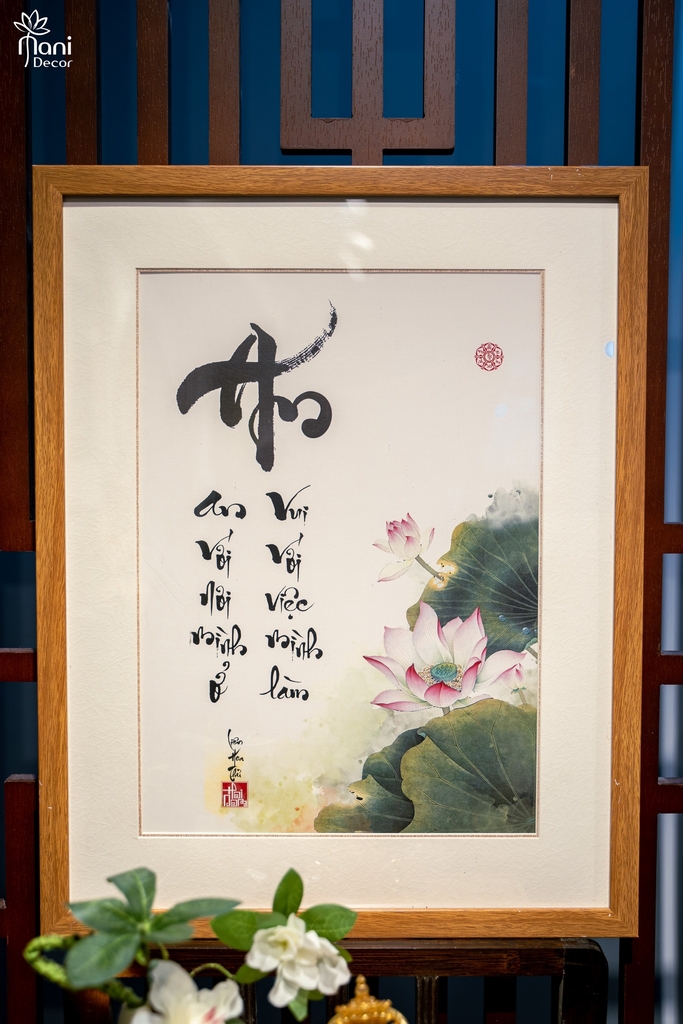 Mani
Decor
An
An với nơi mình ở
Vui với việc mình làm